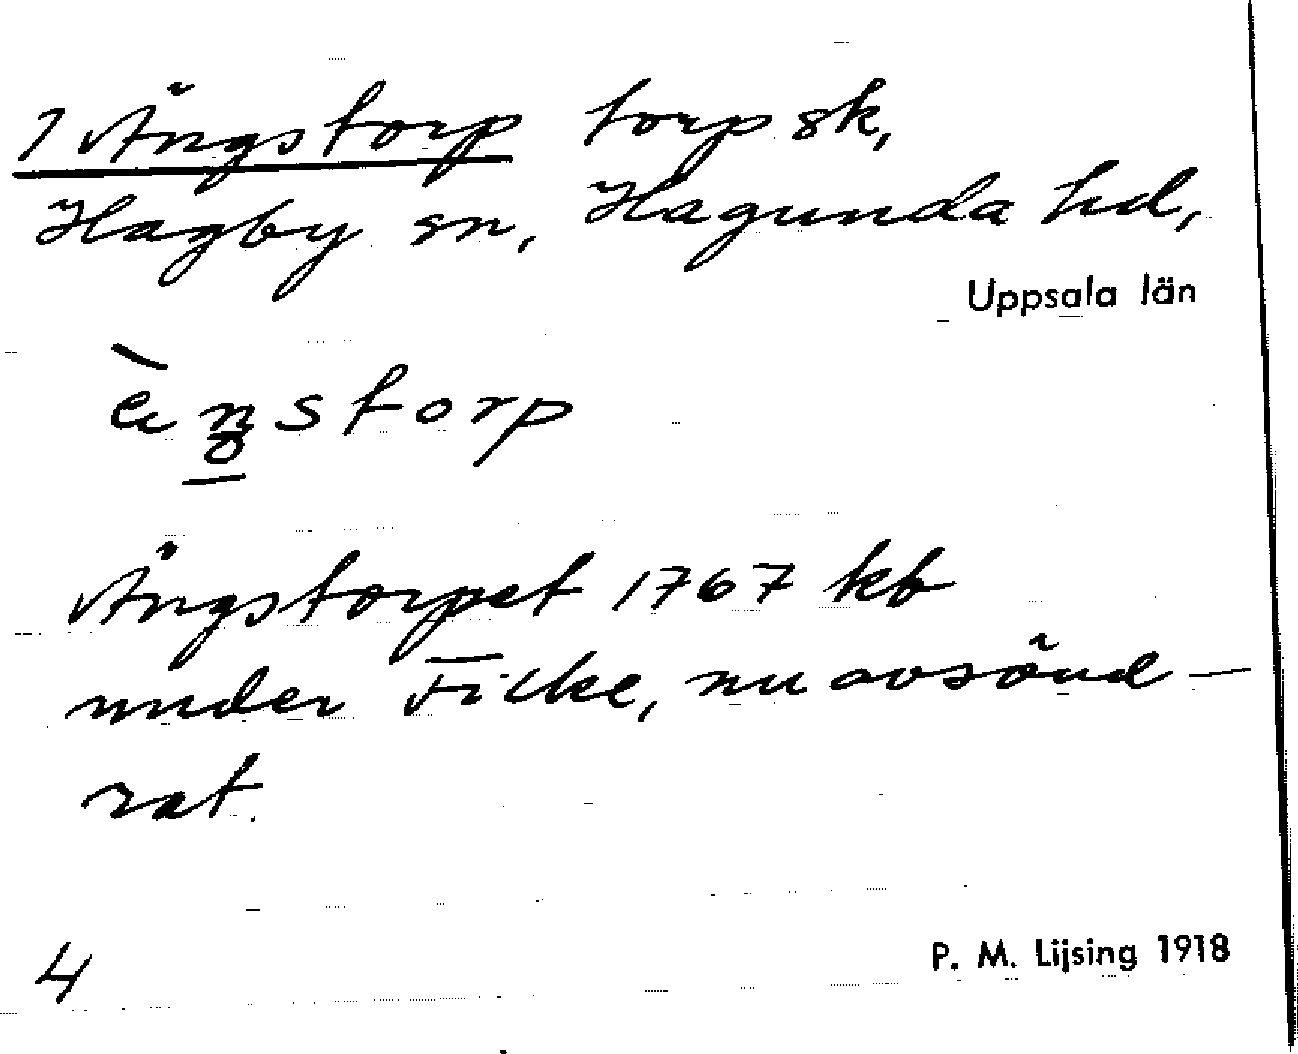 1 Ängstorp torp sk,
Hagby sn, Hagunda hd,
Uppsala län
Ängstorpet 1767 kb
under Focke, nu avsönd-
rat.
4
P. M. Lijsing 1918